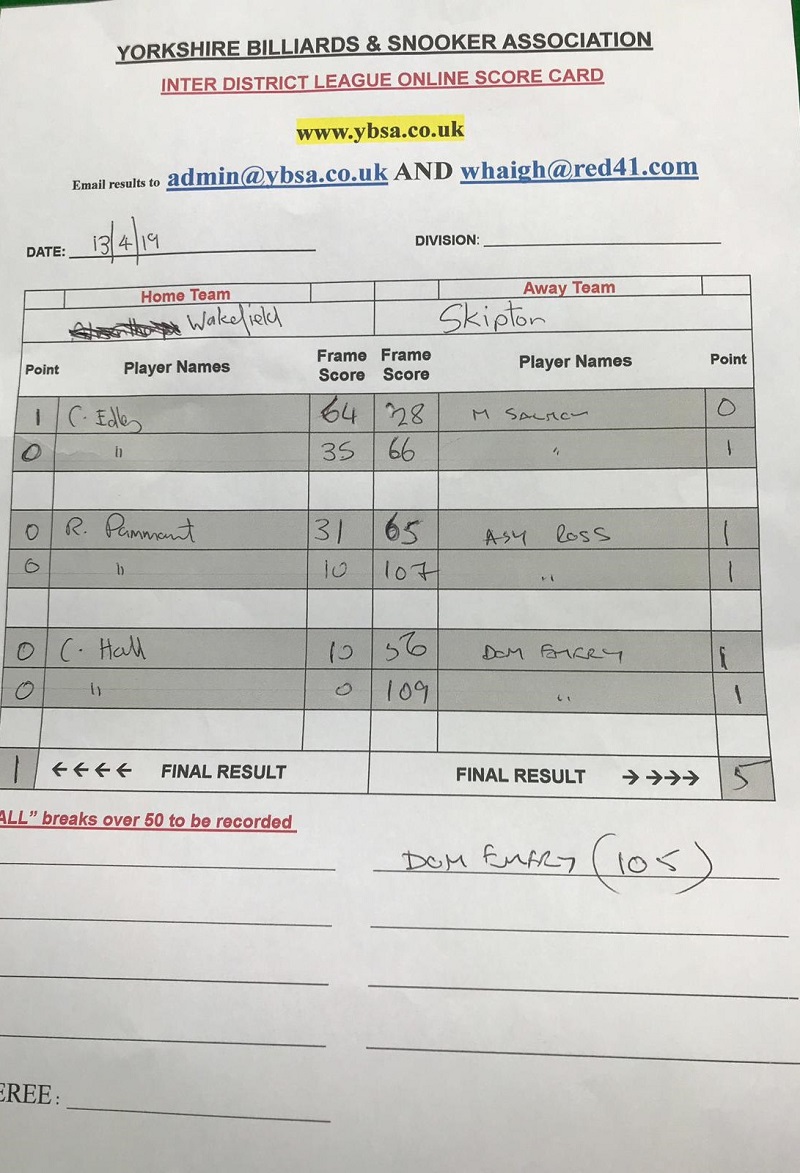 YORKSHIRE BILLIARDS & SNOOKER ASSOCIATION
INTER DISTRICT LEAGUE ONLINE SCORE CARD
www.ybsa.co.uk
Email results to admin@ybsa.co.uk AND whaigh@red41.com
DATE: 13/4/19 DIVISION:
Home Team Away Team
Wakefield Skipton
Point Player Names Frame Score Frame Score Player Names Point
1 C. Edley 64 28 M Salmon 0
0 " 35 66 " 1
0 R. Pammant 31 65 ASH ROSS 1
0 " 10 107 " 1
0 C. Hall 10 56 DOM EMERY 1
0 " 0 109 " 1
1 ←←←← FINAL RESULT FINAL RESULT →→→→ 5
ALL" breaks over 50 to be recorded
DOM EMERY (105)
EREE: